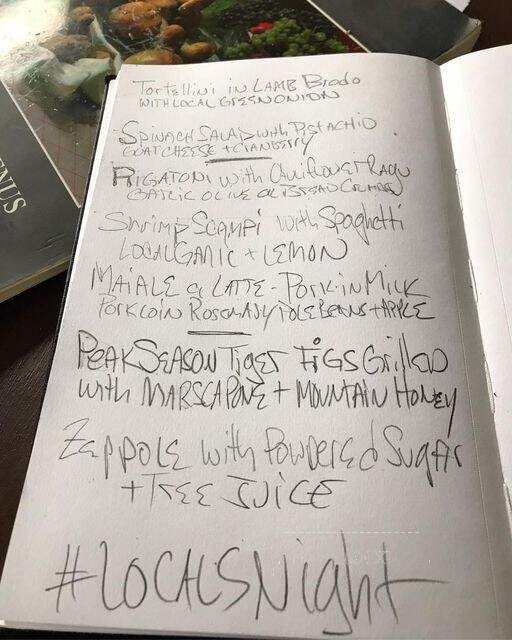 Tortellini in LAMB Brodo
WITH LOCAL GREEN ONION
Spinach Salad with Pistachio
GOAT CHEESE + CRANBERRY
RIGATONI with Cauliflower Ragu
GARLIC OLIVE OIL BREAD CRUMBS
Shrimp Scampi with Spaghetti
LOCAL GARLIC + LEMON
MAIALE al LATTE - PORK in MILK
PORK LOIN ROSEMARY POLE BEANS + APPLE
PEAK SEASON TIGER FIGS Grilled
with MARSCAPONE + MOUNTAIN HONEY
Zappole with Powdered Sugar
+ TREE JUICE
#LOCALSNight
ENUS